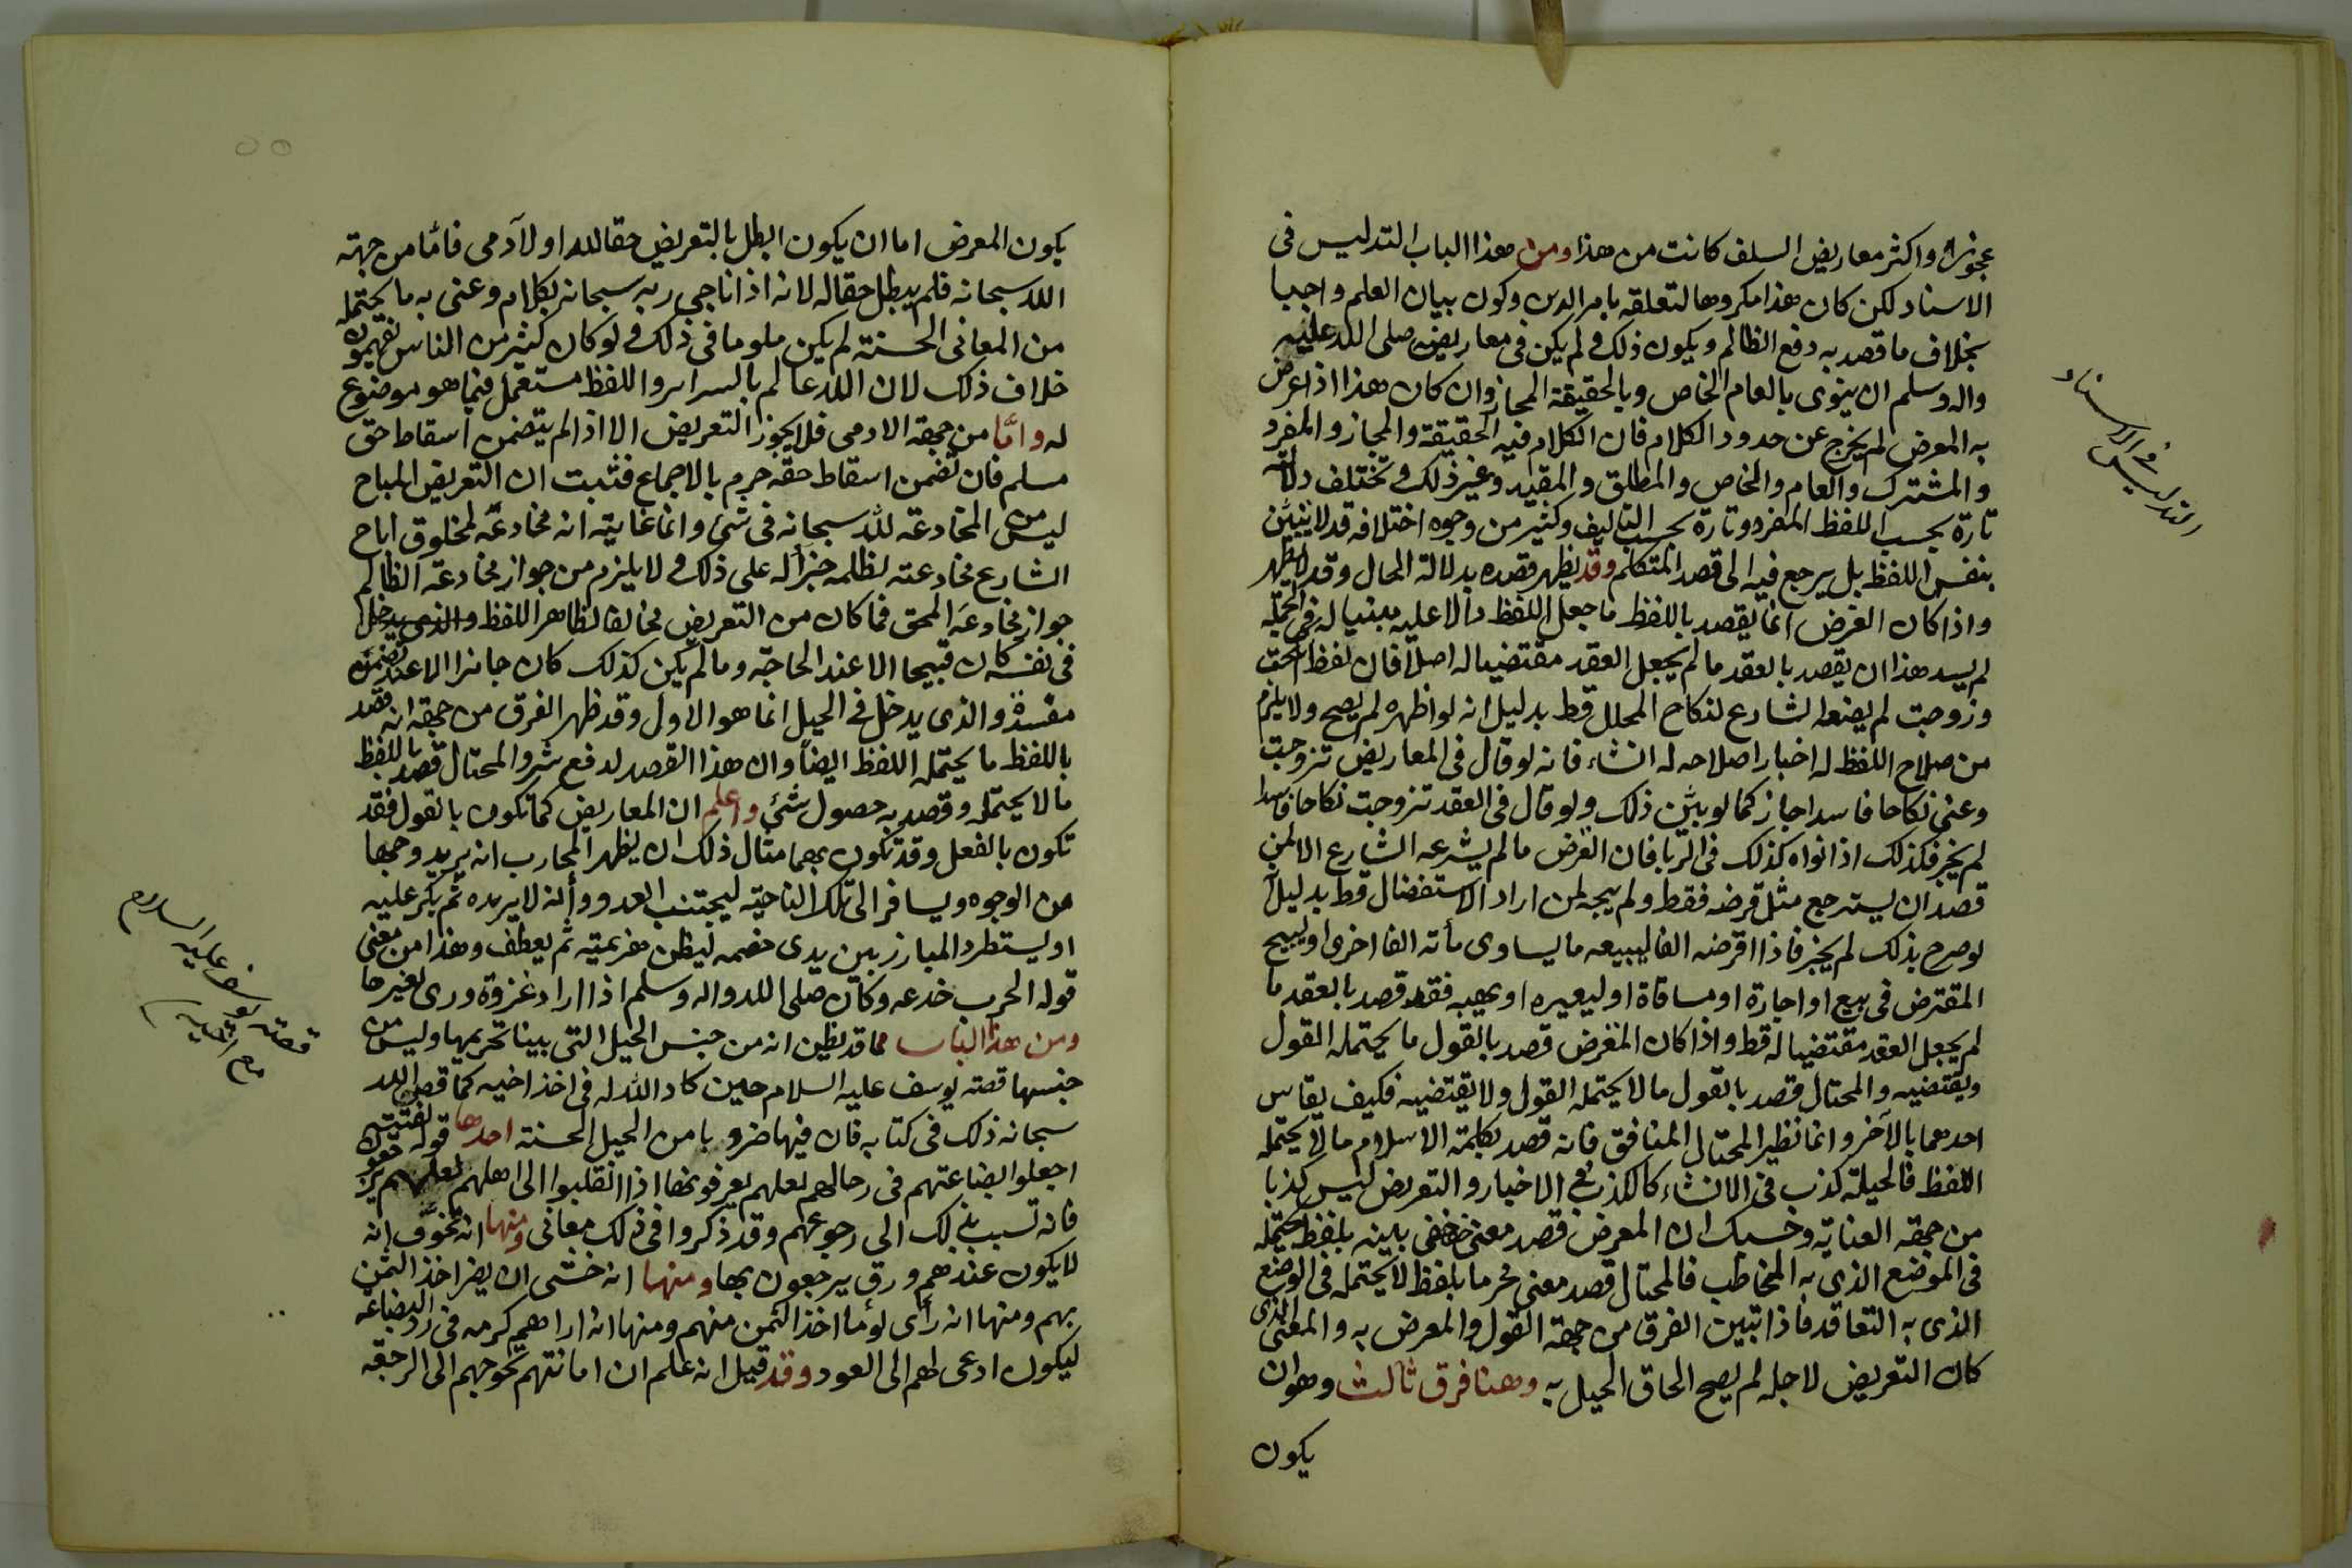 عجوز واكثر معاريض السلف كانت من هذا ومن هذا الباب التدليس فى
الاسناد لكن كان هذا مكروها لتعلقه بامر الدين وكون بيان العلم واجبا
بخلاف ما قصد به دفع الظالم ويكون ذلك ولم يكن فى معاريضه صلى الله عليه
واله وسلم ان ينوى بالعام الخاص وبالحقيقة المجاز وان كان هذا اذا عرض
به المعرض لم يخرج عن حدود الكلام فان الكلام فيه الحقيقة والمجاز والمفرد
والمشترك والعام والخاص والمطلق والمقيد وغير ذلك وتختلف دلالته
تارة بحسب اللفظ المفرد وتارة بحسب التاليف وكثير من وجوه اختلافه قد لا يتبين
بنفس اللفظ بل يرجع فيه الى قصد المتكلم وقد يظهر قصده بدلالة الحال وقد لا يظهر
واذا كان الغرض انما يقصد باللفظ ما جعل اللفظ دالا عليه مبنيا له فى الجملة
لم يسد هذا ان يقصد بالعقد ما لم يجعل العقد مقتضيا له اصلا فان لفظ انكحت
وزوجت لم يضعه الشارع لنكاح المحلل قط بدليل انه لو اظهره لم يصح ولا يلزم
من صلاح اللفظ له اخبارا صلاحه له انشاء فانه لو قال فى المعاريض تزوجت
وعنى نكاحا فاسدا جاز كما لو بين ذلك ولو قال فى العقد تزوجت نكاحا فاسدا
لم يجز فكذلك اذا نواه كذلك فى الربا فان القرض ما لم يشرعه الشارع الا لمن
قصد ان يسترجع مثل قرضه فقط ولم يبحه لمن اراد الاستفضال قط بدليل
لو صرح بذلك لم يجز فاذا اقرضه الفا ليبيعه ما يساوى مأته الفا اخرى او ليبيح
المقترض فى بيع او اجارة او مساقاة او ليعيره او يهبه فقد قصد بالعقد ما
لم يجعل العقد مقتضيا له قط واذا كان المعرض قصد بالقول ما يحتمله القول
ويقتضيه والمحتال قصد بالقول ما لا يحتمله القول ولا يقتضيه فكيف يقاس
احدهما بالآخر وانما نظير المحتال المنافق فانه قصد بكلمة الاسلام ما لا يحتمله
اللفظ فالحيلة كذب فى الانشاء كالكذب فى الاخبار والتعريض ليس كذبا
من جهة العناية وحسبك ان المعرض قصد معنى حقا بنيته بلفظ يحتمله
فى الموضع الذى به المخاطب فالمحتال قصد معنى محرما بلفظ لا يحتمله فى الوضع
الذى به التعاقد فاذا تبين الفرق من جهة القول والمعرض به والمعنى الذى
كان التعريض لاجله لم يصح الحاق الحيل به وهنا فرق ثالث وهو ان
يكون
التدليس
فى الاسناد
يكون المعرض اما ان يكون ابطل بالتعريض حقا لله او لآدمى فامّا من جهة
الله سبحانه فلم يبطل حقا له لانه اذا ناجى ربه سبحانه بكلام وعنى به ما يحتمله
من المعانى الحسنة لم يكن ملوما فى ذلك ولو كان كثير من الناس يفهمون
خلاف ذلك لان الله عالم بالسراير واللفظ مستعمل فيما هو موضوع
له وامّا من جهة الادمى فلا يجوز التعريض الا اذا لم يتضمن اسقاط حق
مسلم فان تضمن اسقاط حقه حرم بالاجماع فثبت ان التعريض المباح
ليس من المخادعة لله سبحانه فى شئ وانما غايته انه مخادعة لمخلوق اباح
الشارع مخادعته لظلمه جزأ له على ذلك ولا يلزم من جواز مخادعة الظالم
جواز مخادعة المحق فما كان من التعريض مخالفا لظاهر اللفظ والذى يدخل
فى نفسه كان قبيحا الا عند الحاجة وما لم يكن كذلك كان جائزا الا عند تضمن
مفسدة والذى يدخل فى الحيل انما هو الاول وقد ظهر الفرق من جهة انه قصد
باللفظ ما يحتمله اللفظ ايضاً وان هذا القصد لدفع شر والمحتال قصد باللفظ
ما لا يحتمله وقصد به حصول شئ واعلم ان المعاريض كما تكون بالقول فقد
تكون بالفعل وقد تكون بهما مثال ذلك ان يظهر المحارب انه يريد وجها
من الوجوه ويسافر الى تلك الناحية ليجتنب العدو وأنه لا يريده ثم يكر عليه
او يستطرد المبارز بين يدى خصمه ليظن هزيمته ثم يعطف وهذا من معنى
قوله الحرب خدعه وكان صلى الله واله وسلم اذا اراد غزوة ورى بغيرها
ومن هذا الباب مما قد يظن انه من جنس الحيل التى بينا تحريمها وليس من
جنسها قصة يوسف عليه السلام حين كاد الله له فى اخذ اخيه كما قص الله
سبحانه ذلك فى كتابه فان فيها ضروبا من الحيل الحسنة احدها قوله لفتيته
اجعلوا بضاعتهم فى رحالهم لعلهم يعرفونها اذا انقلبوا الى اهلهم لعلهم يرجعون
فانه تسبب بذلك الى رجوعهم وقد ذكروا فى ذلك معانى ومنها انه تخوّف انه
لا يكون عندهم ورق يرجعون بها ومنها انه خشى ان يضر اخذ الثمن
بهم ومنها انه رأى لوئما اخذ الثمن منهم ومنها انه اراهم كرمه فى رد البضاعة
ليكون ادعى لهم الى العود وقد قيل انه علم ان امانتهم تحوجهم الى الرجعة
قصة يوسف عليه السلام
مع اخيه